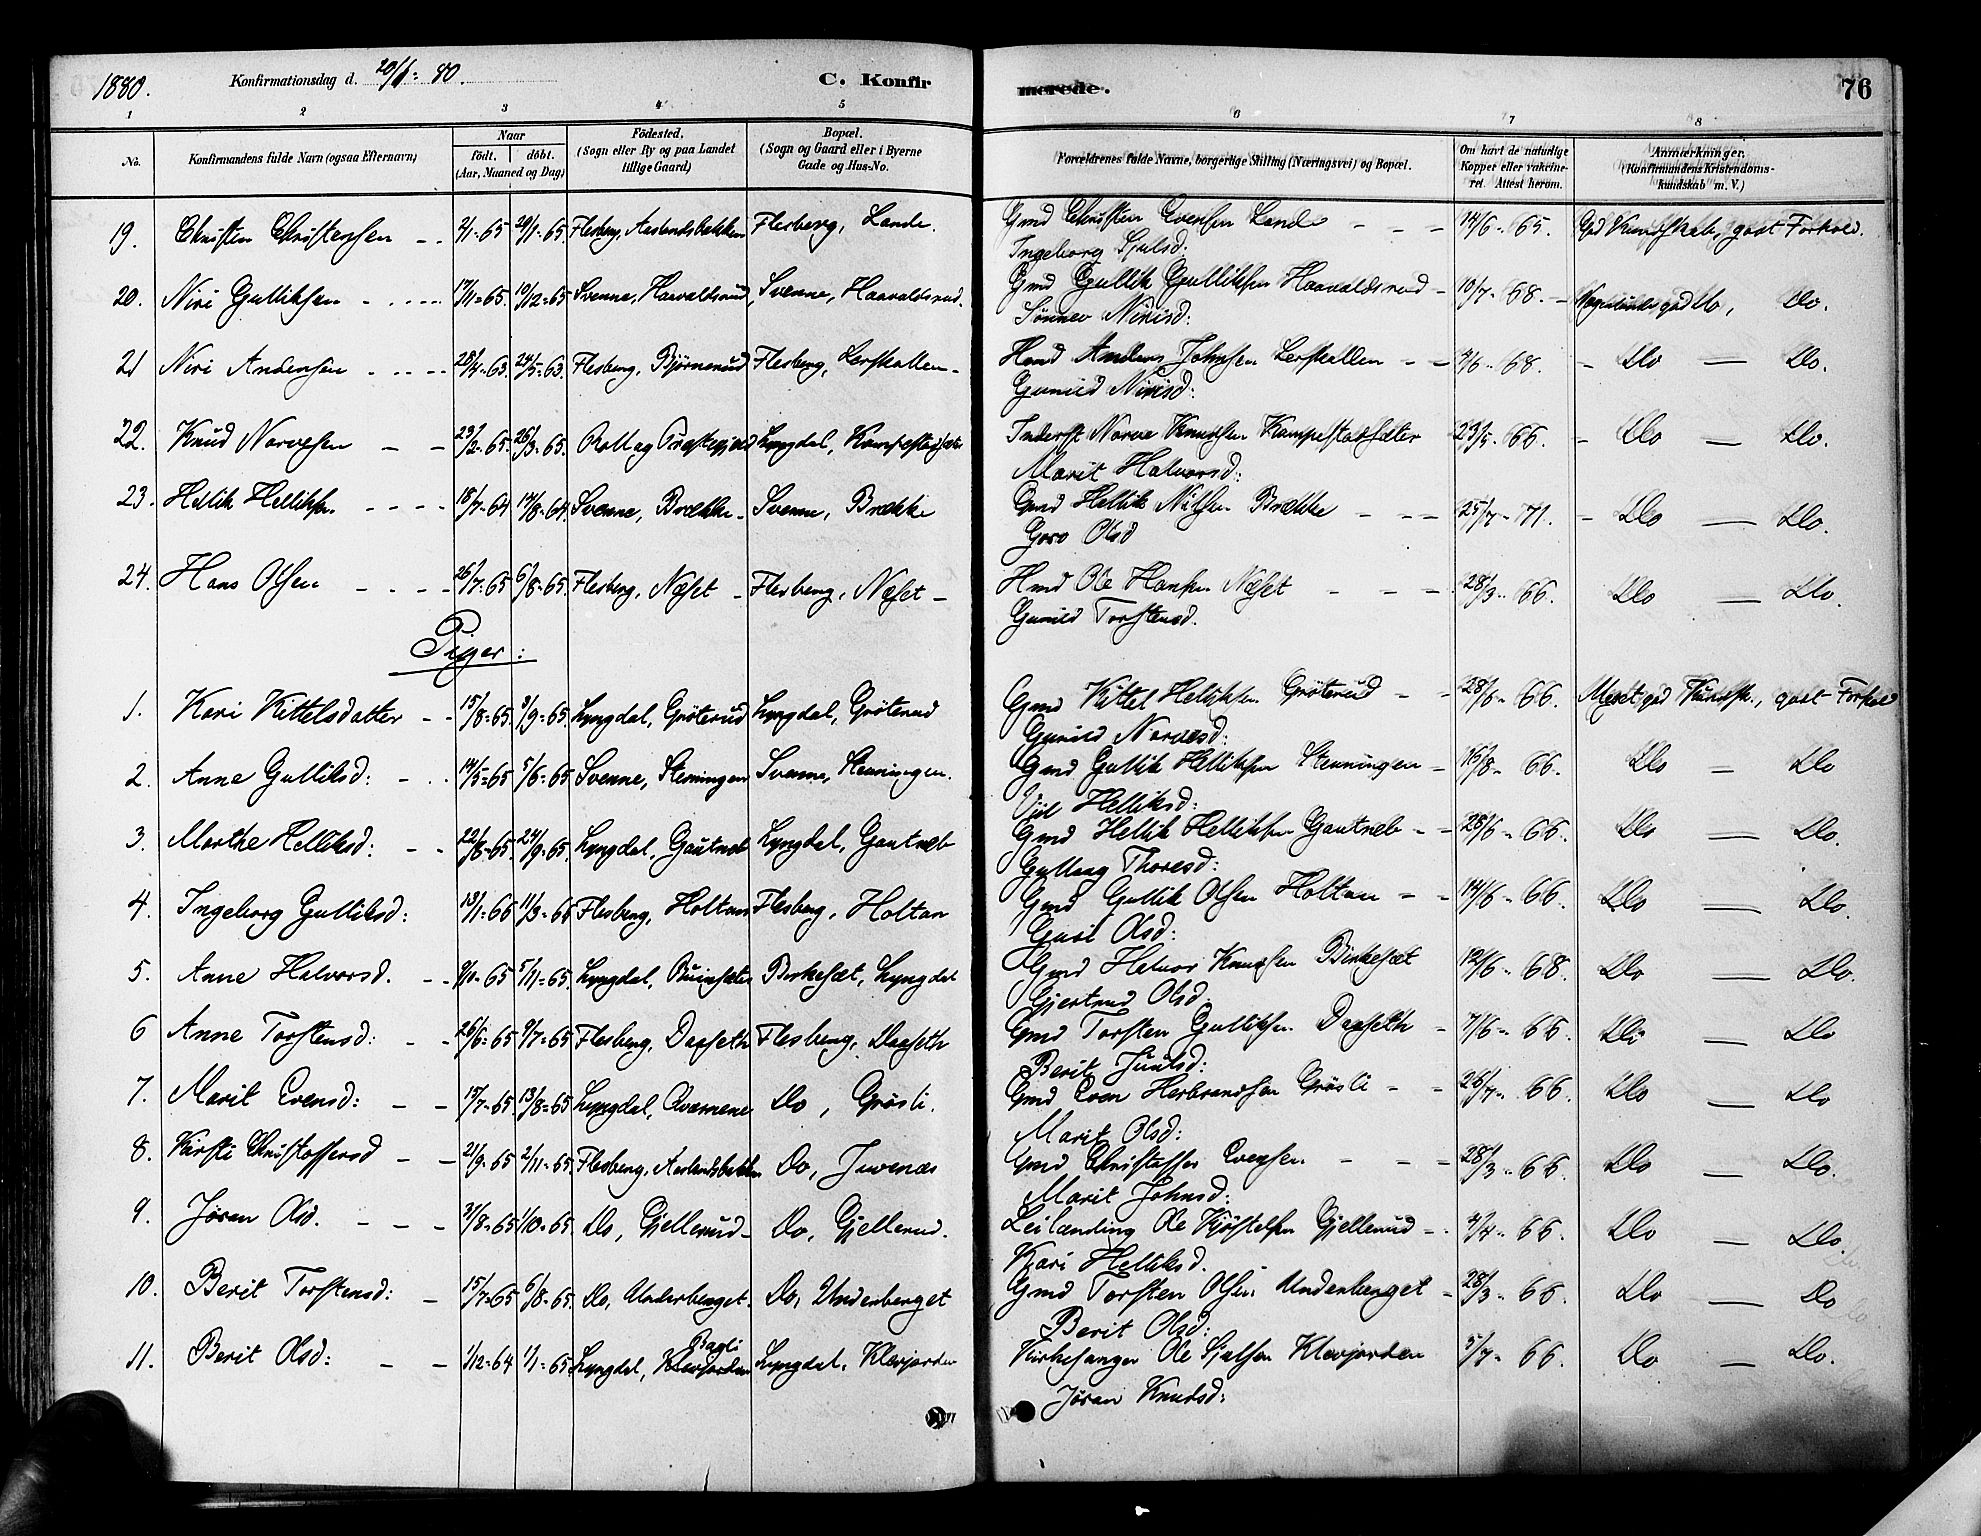 1880. Konfirmationsdag d. 20/6 = 80. C. Konfir
merede. 76
1 2 3 4 5 6 7 8
No. Konfirmandens fulde Navn (ogsaa Efternavn)
Naar
födt. döbt.
(Aar, Maaned og Dag)
Födested.
(Sogn eller By og paa Landet
tillige Gaard)
Bopæl.
(Sogn og Gaard eller i Byerne
Gade og Hus-No.
Forældrenes fulde Navne, borgerlige Stilling (Næringsvei) og Bopæl.
Om havt de naturlige
Kopper eller vakcine-
ret. Attest herom.
Anmærkninger.
(Konfirmandens Kristendoms-
kundskab m. V.)
19. Christen Christensen - - 2/1-65 29/1-65. Flesberg, Aaslandsbakken Flesberg, Lande. Gmd Christen Evensen Lande - - - 14/6 - 65. God Kundskab, godt Forhold.
Ingeborg Sjulsd.
20. Niri Gulliksen - - - - - 17/11=65. 10/12=65 Svenne, Haavaldsrud, Svenne, Haavaldsrud. Gmd Gullik Gulliksen Haavaldsrud - 10/7 - 68. - Nogenlunde god Do, Do.
Sönnev Nirisd:
21 Niri Andersen - - - - - 28/4=63. 24/5=63. Flesberg, Björnerud Flesberg, Lerskallen - Hmd Anders Johnsen Lerskallen - - 3/6 - 68. - Do — Do.
Gunild Nirisd:
22. Knud Narvesen - - 23/2=65. 26/3=65. Rollag Præstegjeld Lyngdal, Inderst Narve Knudsen Kampestadsæter 23/5 - 66. - Do — Do.
Marit Halvorsd:
23. Hellik Helliksen. - - - - 18/7=64 14/8=64. Svenne, Brække - Svenne, Brække Gmd Hellik Nilsen Brække - - - 25/7 - 71. - Do — Do.
Goro Olsd
24. Hans Olsen - - - - 26/7=65 6/8=65. Flesberg, Næset - Flesberg, Næset - Hmd Ole Hansen Næset - - - 28/3 - 66. Do — Do.
Gunild Torstensd.
Piger:
1. Kari Kittelsdatter - - 15/8=65. 3/9=65. Lyngdal, Gröterud Lyngdal, Gröterud Gmd Kittel Helliksen Gröterud - - 28/6 - 66. Meget god Kundsk., godt Forhold
Gunild Narvesd:
2. Anne Gulliksd: - - 14/5=65 5/6=65. Svenne, Stenningen Svenne, Stenningen. Gmd Gullik Helliksen Stenningen - 16/8 - 66. Do — Do
Viil Helliksd:
3. Marthe Helliksd: - - 22/8=65. 24/9=65. Lyngdal, Gautneb Lyngdal, Gautneb Gmd Hellik Helliksen Gautneb - - 28/6 - 66. Do — Do.
Gullaug Thoresd:
4. Ingeborg Gulliksd: 13/1=66 11/3=66 Flesberg, Holtan Flesberg, Holtan Gmd Gullik Olsen Holtan - - 14/6 - 66. Do — Do.
Guri Olsd:
5. Anne Halvorsd. - - 9/10=65 5/11=65. Lyngdal, Birkesæt, Lyngdal Gmd Halvor Knudsen Birkesæt 12/6 - 68. Do — Do.
Gjertrud Olsd.
6 Anne Torstensd: - - 26/6=65 9/7=65 Flesberg, Daaseth Flesberg, Daaseth Gmd Torsten Gulliksen Daaseth - 7/6 - 66. Do — Do
Berit Juulsd:
7. Marit Evensd: - - 15/7=65. 13/8=65 Lyngdal, Qværnene Do, Grösli. Gmd Even Herbrandsen Grösli - - 26/7 - 66. Do — Do
Marit Olsd:
8. Kirsti Christoffersd - - 21/9=65 2/11=65. Flesberg, Aaslandsbakken Do, Juvenæs Gmd Christoffer Evensen - - - 28/3 - 66. Do — Do.
Marit Johnsd:
9. Jöran Olsd. - - - 31/8=65 1/10=65. Do, Gjellerud - Do, Gjellerud. Leilænding Ole Kjöstelsen Gjellerud - - 4/4 - 66. Do — Do.
Kari Helliksd.
10. Berit Torstensd: - 15/7=65 6/8=65. Do, Underberget. Do, Underberget Gmd Torsten Olsen Underberget - 28/3 - 66. Do — Do
Berit Olsd:
11. Berit Olsd: - - 1/12=64 1/1=65. Lyngdal, Bagli Klevjorden Lyngdal, Klevjorden Kirkesanger Ole Sjulsen Klevjorden 5/7 - 66. Do — Do.
Jöran Knudsd: